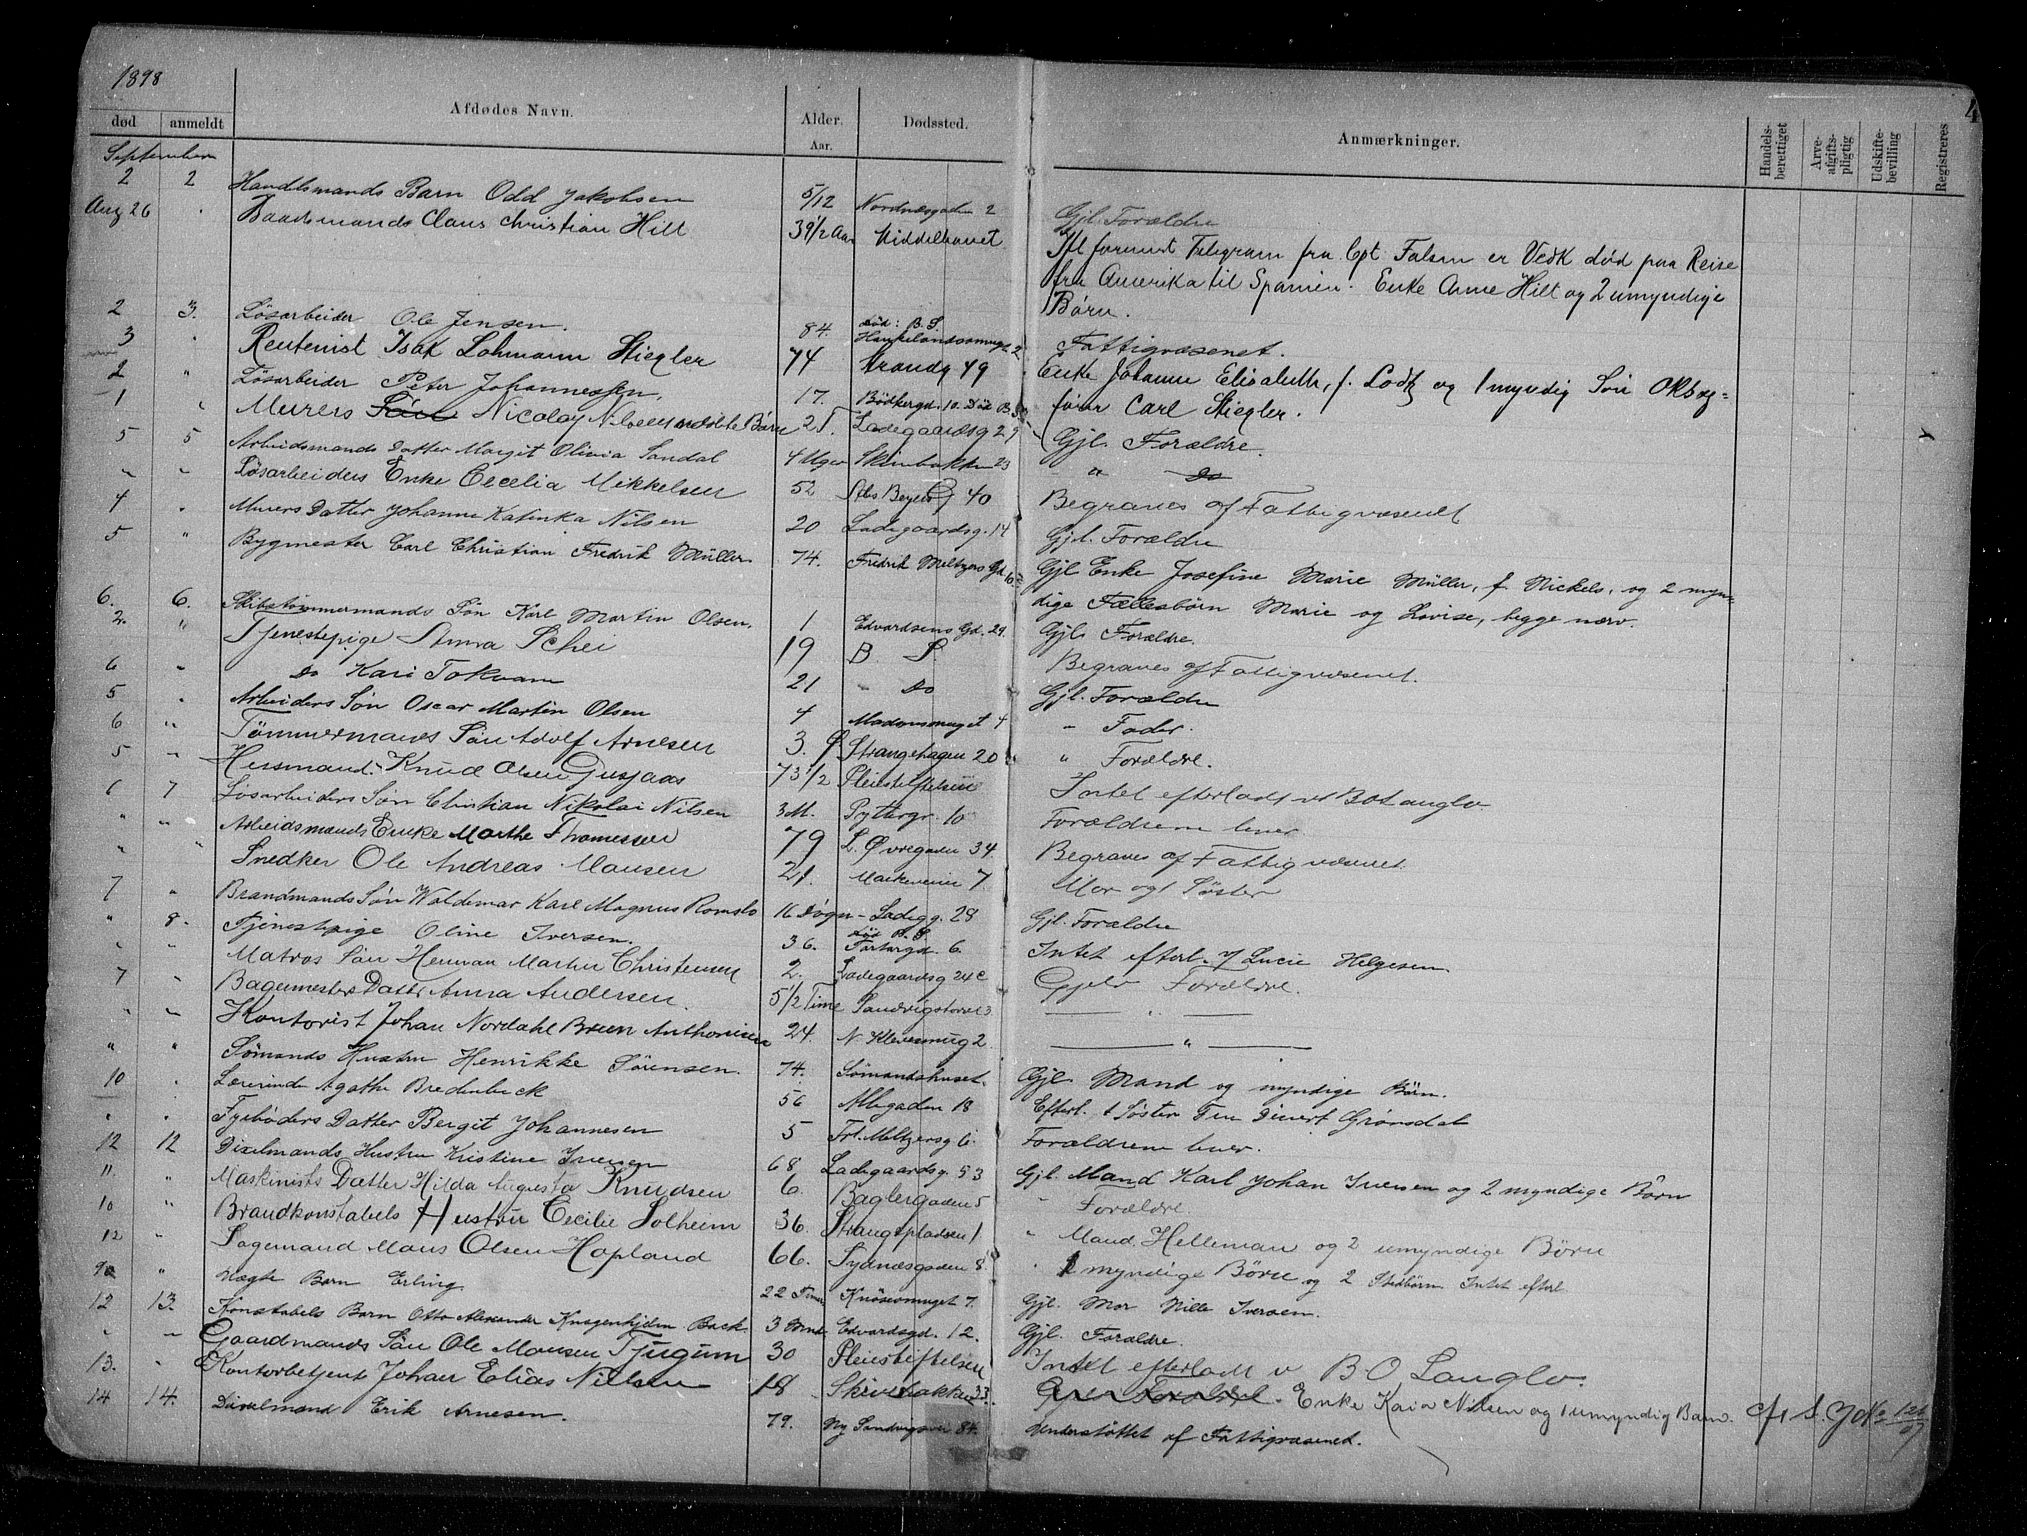 1898
død anmeldt Afdødes Navn. Alder. Aar. Dødssted. Anmærkninger. Handels-berettiget Arve-afgifts-pligtig Udskifte-bevilling Registreres 4
September
2 2 Handlsmands Barn Odd Jakobsen 5/12 Nordnæsgaden 2 Gjl. Forældre
Aug 26 " Baadsmands Claus Christian Hilt 39 1/2 Aar Middelhavet Ifl forevist Telegram fra Cpt. Falsen er Vedk død paa Reise
fra Amerika til Spanien. Enke Anne Hilt og 2 umyndige
Børn.
2 3. Løsarbeider Ole Jensen. 84. død: B. S. Haukelandssmuget 2 Fattigvæsenet.
3 " Rentenist Isak Lohmann Stiegler 74 Strandg 49 Enke Johanne Elisabeth, f. Lodtz og 1 myndig Søn
2 " Løsarbeider Peter Johannessen. 17. Bødkergd. 10. Død B. S. foier Carl Stiegler.
1 " Murers Søn Nicolay Nilsens udøbte Børn 2 T. Ladegaardsg 29 Gjl. Forældre.
5 5 Arbeidsmands Datter Margit Olivia Sandal 4 Uger Skivebakken 23 " Do
" " Løsarbeiders Enke Cecelia Mikkelsen 52 Abs Beyers G 40 Begraves af Fattigvæsenet
4 " Murers Datter Johanne Katinka Nilsen 20 Ladegaardsg. 14 Gjl. Forældre
5 " Bygmester Carl Christian Fredrik Müller 74. Fredrik Meltzers Gd 10. Gjl Enke Josefine Marie Müller, f. Nickels, og 2 myn-
dige Fællesbørn Marie og Lovise, begge nærv.
6. 6. Skibstømmermands Søn Karl Martin Olsen. 1 Edvardsens Gd. 29. Gjl. Forældre.
2. " Tjenestepige Anna Schei 19 B. S. Begraves af Fattigvæsenet.
6 " Do Kari Tokvam 21 " Do Gjl. Forældre
5 " Arbeiders Søn Oscar Martin Olsen 4 Madamsmuget 4 " Fader.
6 " Tømmermands Søn Adolf Arnesen 3. Ø Strangehagen 20 " Forældre.
5 " Husmand Knud Olsen Gusjaas 73 1/2 Pleiestiftelsen Intet efterladt v/ B O Langlo
6 7 Løsarbeiders Søn Christian Nikolai Nilsen 3 M. Pyttergr. 10 Forældrene lever
" " Arbeidsmands Enke Marthe Thomessen 79 L. Øvregaden 34. Begraves af Fattigvæsenet.
" " Snedker Ole Andreas Monsen 21. Markeveien 7. Mor og 1 Søster
7 " Brandmands Søn Waldemar Karl Magnus Romslo 16 Døgn - Ladegg. 28 Gjl. Forældre
" 8. Tjenestepige Oline Iversen. 36. død B. S. Fortørgd. 6. Intet efterl. v/ Lucie Helgesen.
" " Matros Søn Herman Martin Christensen 2. Ladegaardsg 24 c Gjelv Forældre.
7 " Bagermesters Datter Anna Andersen 5 1/2 Time Sandvigstorvet 3 "
" " Kontorist Johan Nordahl Brun Anthonisen 24. N. Klevesmug 2 "
" " Sømands Hustru Henrikke Sørensen. 74. Sømandshuset. Gjl. Mand og myndige Børn.
10 " Lærerinde Agathe Bredenbeck 56 Allegaden 18 Efterl. 1 Søster Fru Divert Grønsdal
" " Fyrbøders Datter Bergit Johannesen 5 Frt. Meltzersg 6. Forældrene lever.
12 12 Dixelmands Hustru Kristine Iversen 68 Ladegaardsg. 53 Gjl. Mand Karl Johan Iversen og 2 myndige Børn
11. " Maskinists Datter Hilda Augusta Knudsen 6. Baglergaden 5 " Forældre
10 " Brandkonstabels Hustru Cecilie Solheim 36. Strangepladsen 1 " Mand Helleman og 2 umyndige Børn
12 " Sagemand Mons Olsen Hopland 66. Sydnæsgaden 8 " 2 myndige Børn og 2 Stedbørn Intet efterl
9 " Uægte Barn Erling 22 Timer Knøsesmuget 7. Gjl. Mor Nille Iversen.
12 13. Konstabels Barn Otto Alexander Knagenhjelm Back 3 Mnd Edvardsgd. 12. Gjl. Forældre.
" " Gaardmands Søn Ole Monsen Tjugum 30 Pleiestiftelsen Intet efterladt v B O Langlo.
13. " Kontorbetjent Johan Elias Nilsen 18 Skivebakken 33. Gjl. Forældre. Enke Kaia Nilsen og 1 umyndig Barn. cfr S. J No 126/07
14 14. Dixelmand Erik Arnesen. 79. Ny Sandvigsvei 84. Understøttet af Fattigvæsenet.